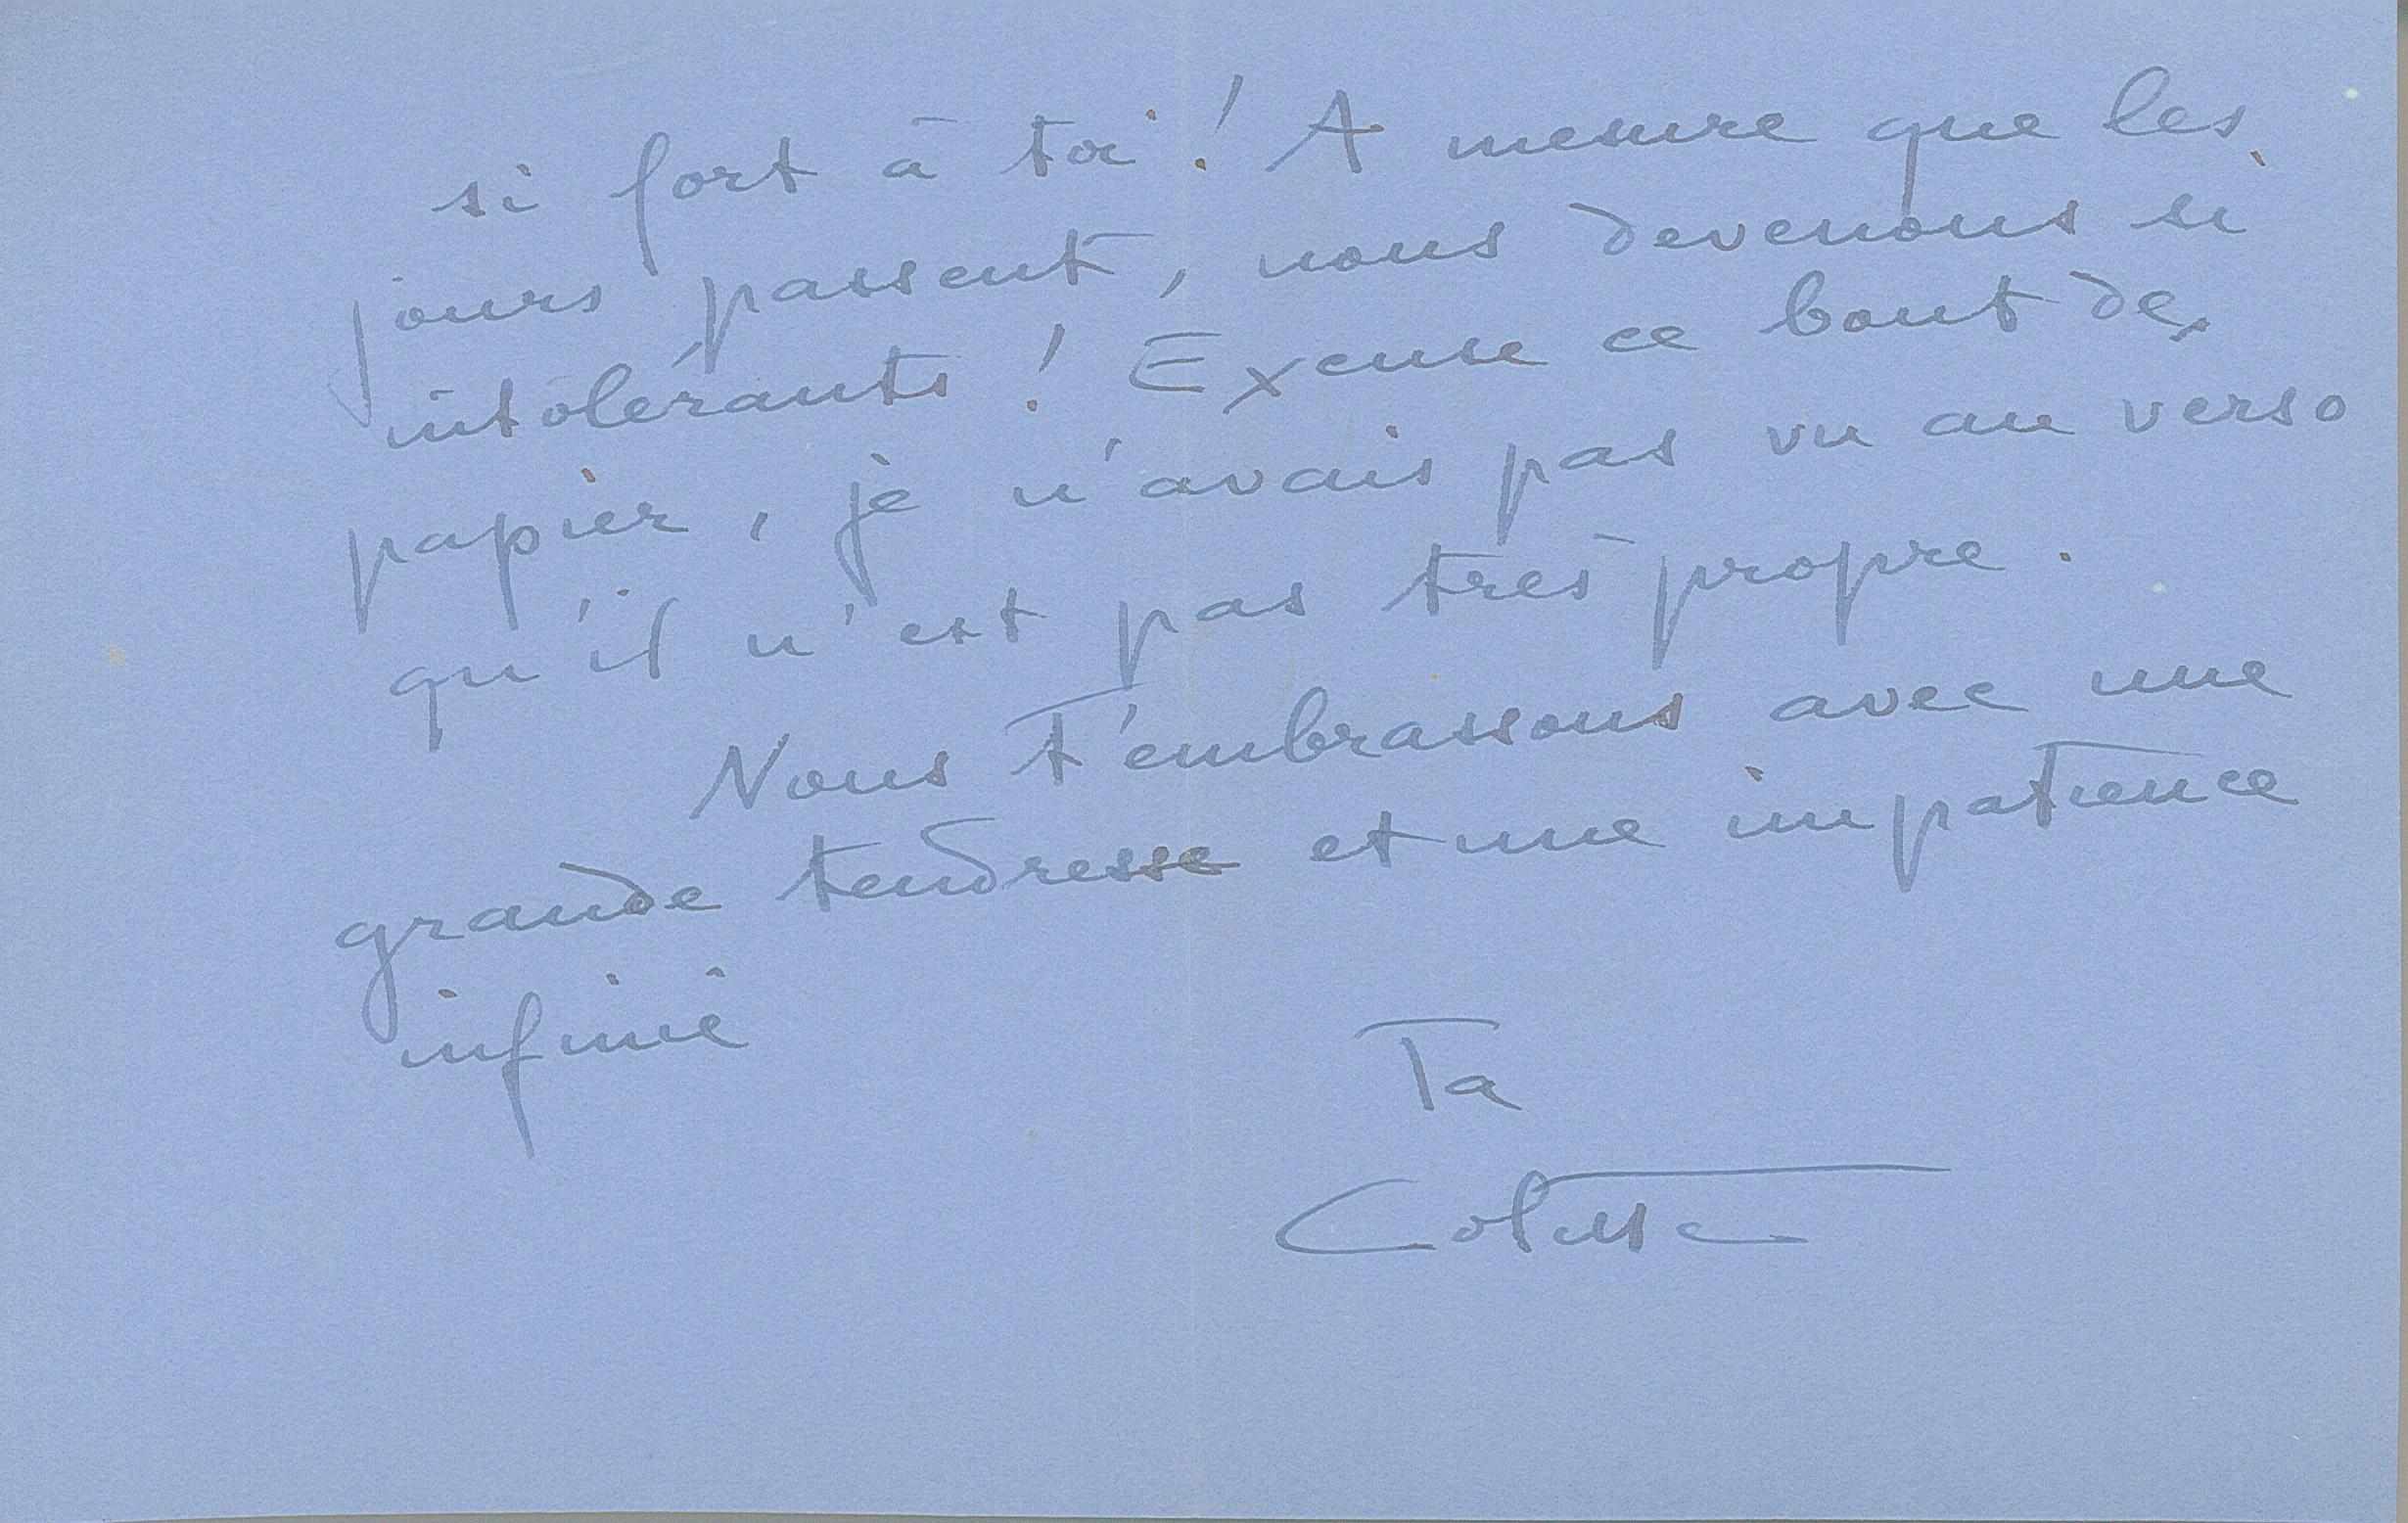 si fort à toi ! A mesure que les
jours passent, nous devenons si
intolérants ! Excuse ce bout de
papier, je n'avais pas vu au verso
qu'il n'est pas très propre.
Nous t'embrassons avec une
grande tendresse et une impatience
infinie
Ta
Colette